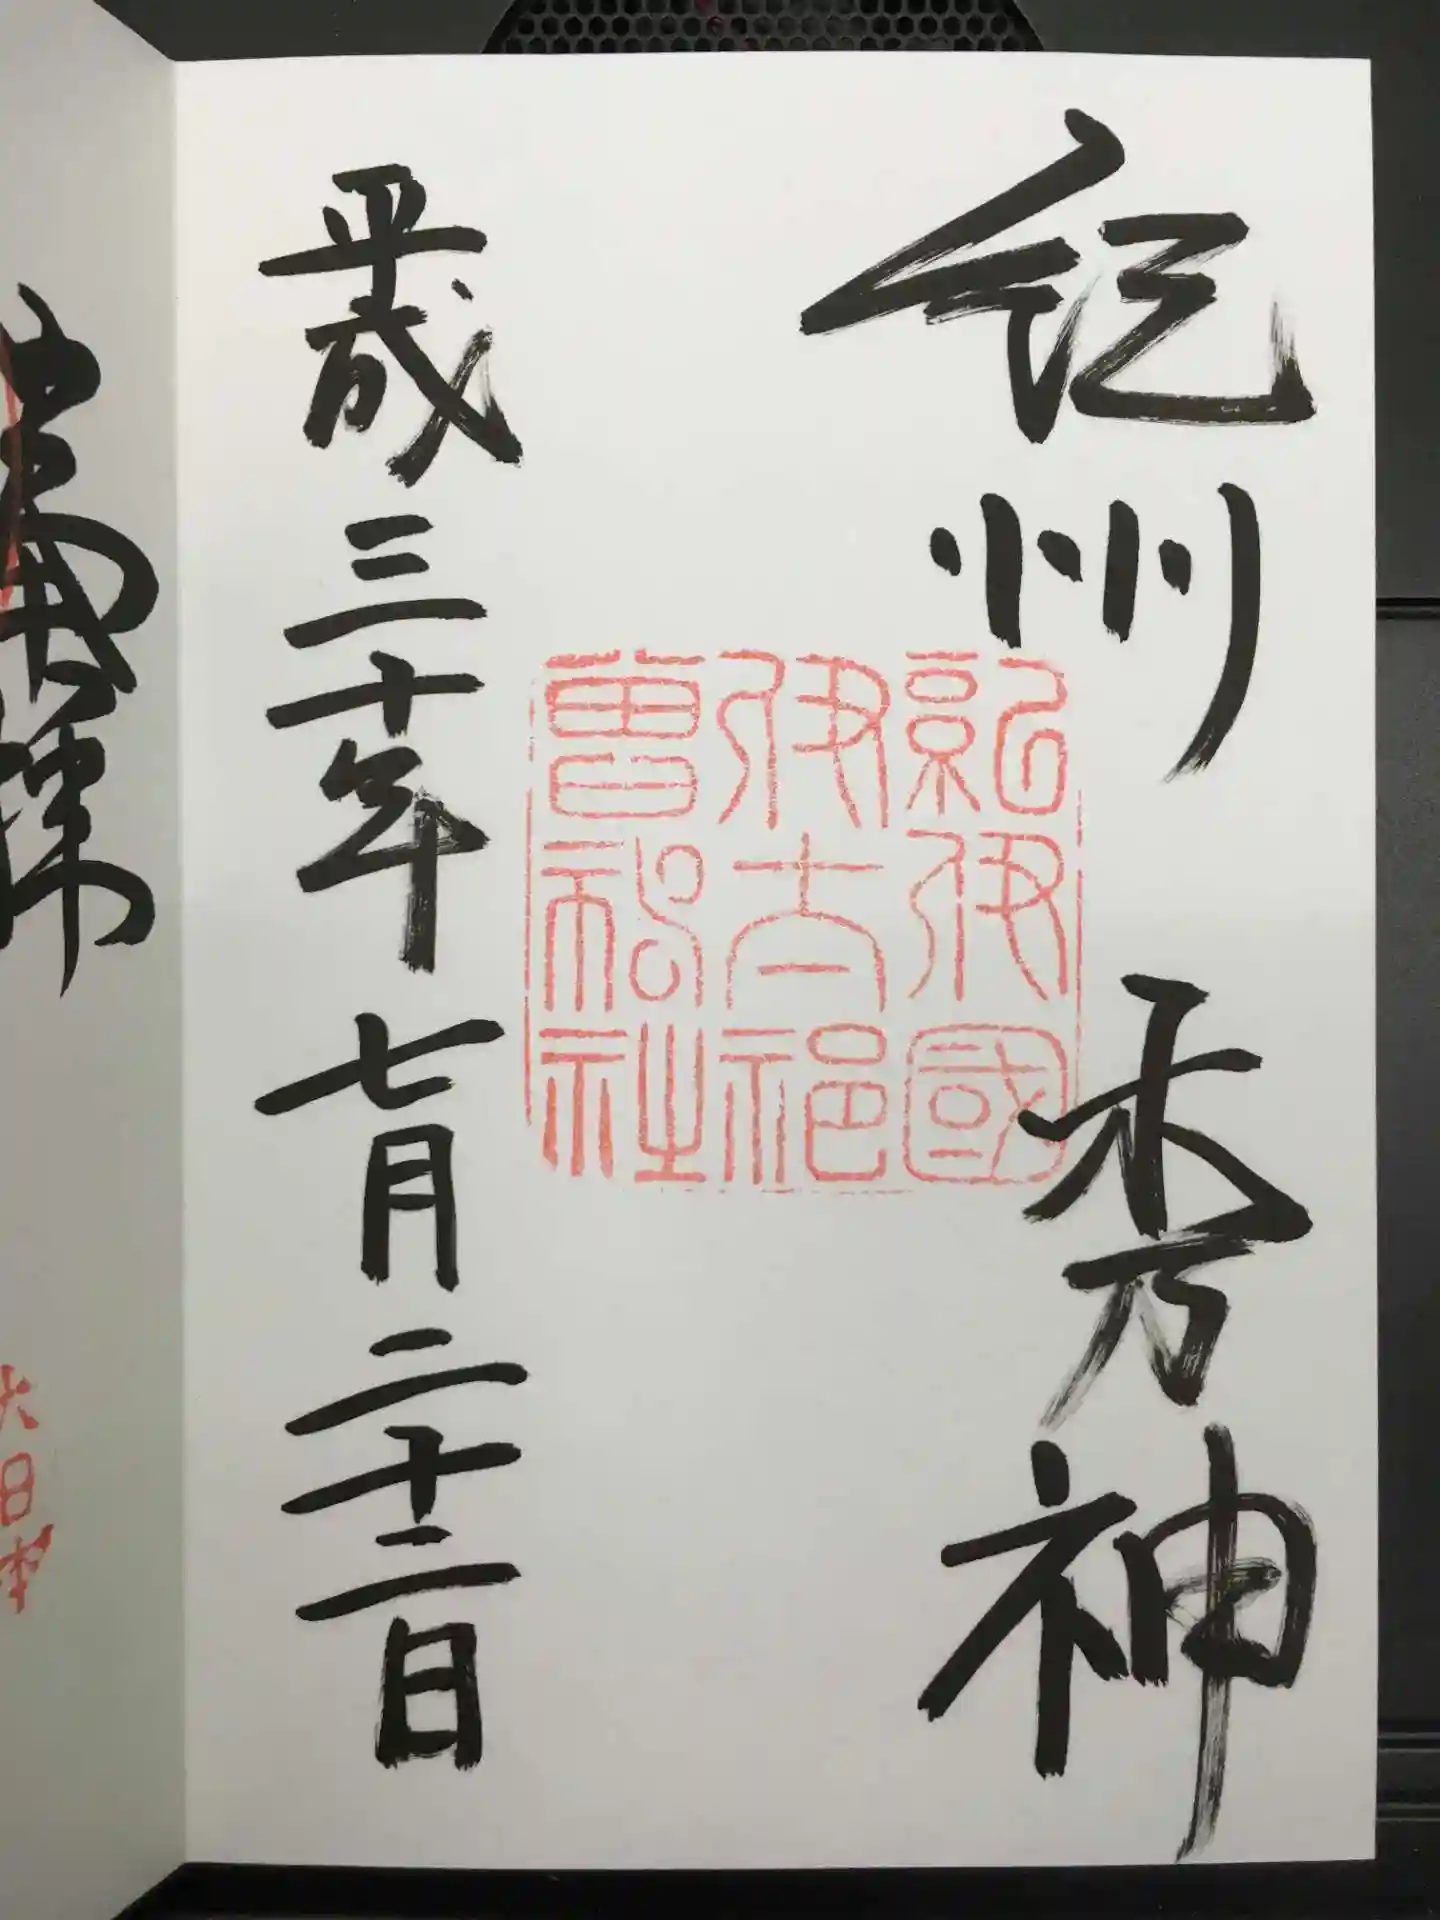 紀州 木乃神
紀伊國
伊太祁
曽神社
平成三十年七月二十二日
大日本